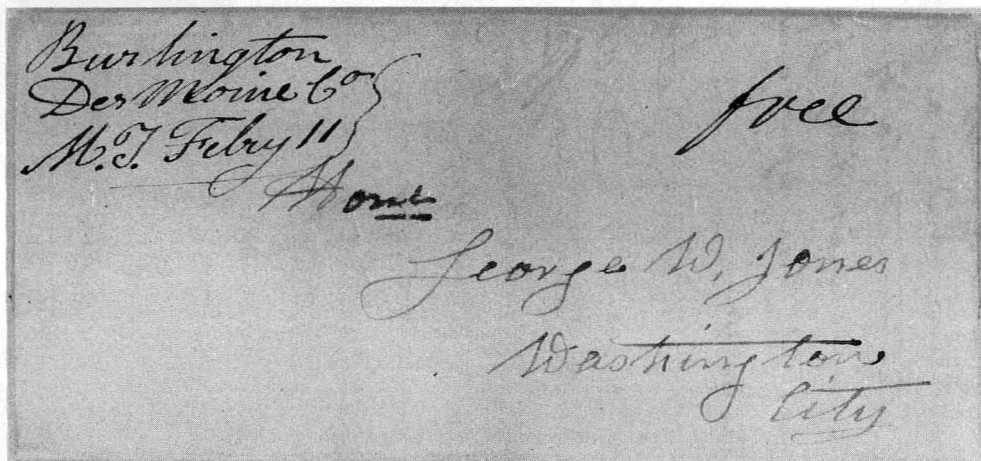 Burlington
Des Moine Co
M.T. Febry 11
free
Honl
George W. Jones
Washington
City